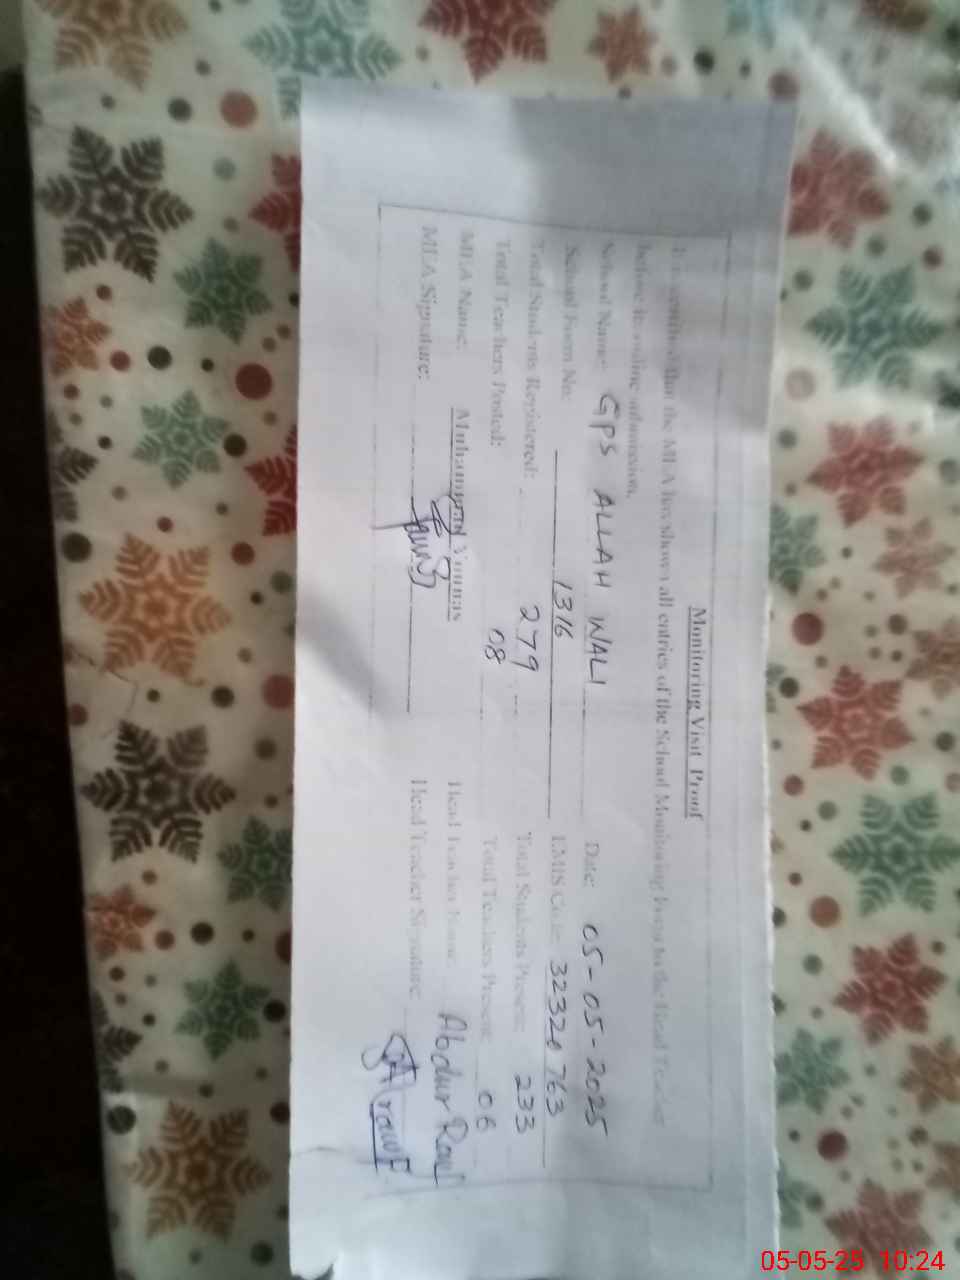 Monitoring Visit Proof
It is certified that the MEA has shown all entries of the School Monitoring Form to the Head Teacher
before its online submission.
School Name: GPS ALLAH WALI Date: 05-05-2025
School Form No: 1316 EMIS Code: 32320763
Total Students Registered: 279 Total Students Present: 233
Total Teachers Posted: 08 Total Teachers Present: 06
MEA Name: Muhammad Younas Head Teacher Name: Abdur Rauf
MEA Signature: Head Teacher Signature:
05-05-25 10:24